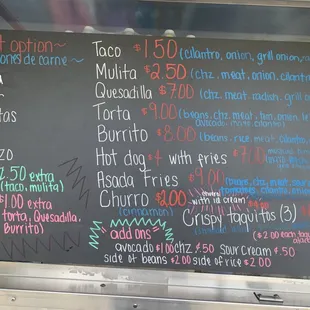 t option~
ones de carne~
Taco $1.50 (cilantro, onion, grill onion,
Mulita $2.50 (chz, meat, onion, cilantro
Quesadilla $7.00 (chz, meat, radish, grill
Torta $9.00 (beans, chz, meat, tom, onion, le
avocado mayo cilantro)
Burrito $8.00 (beans, rice, meat, cilantro
Hot dog + with fries $7.00
Asada Fries $9.00
Churro $2.00 with ice cream
(cinnamon)
Crispy taquitos (3)
($2.00 each taquito
zo
$2.50 extra
(taco, mulita)
$1.00 extra
torta, Quesadilla,
Burrito)
add ons
avocado $1.00 chz $.50 Sour Cream $.50
side of beans $2.00 side of rice $2.00